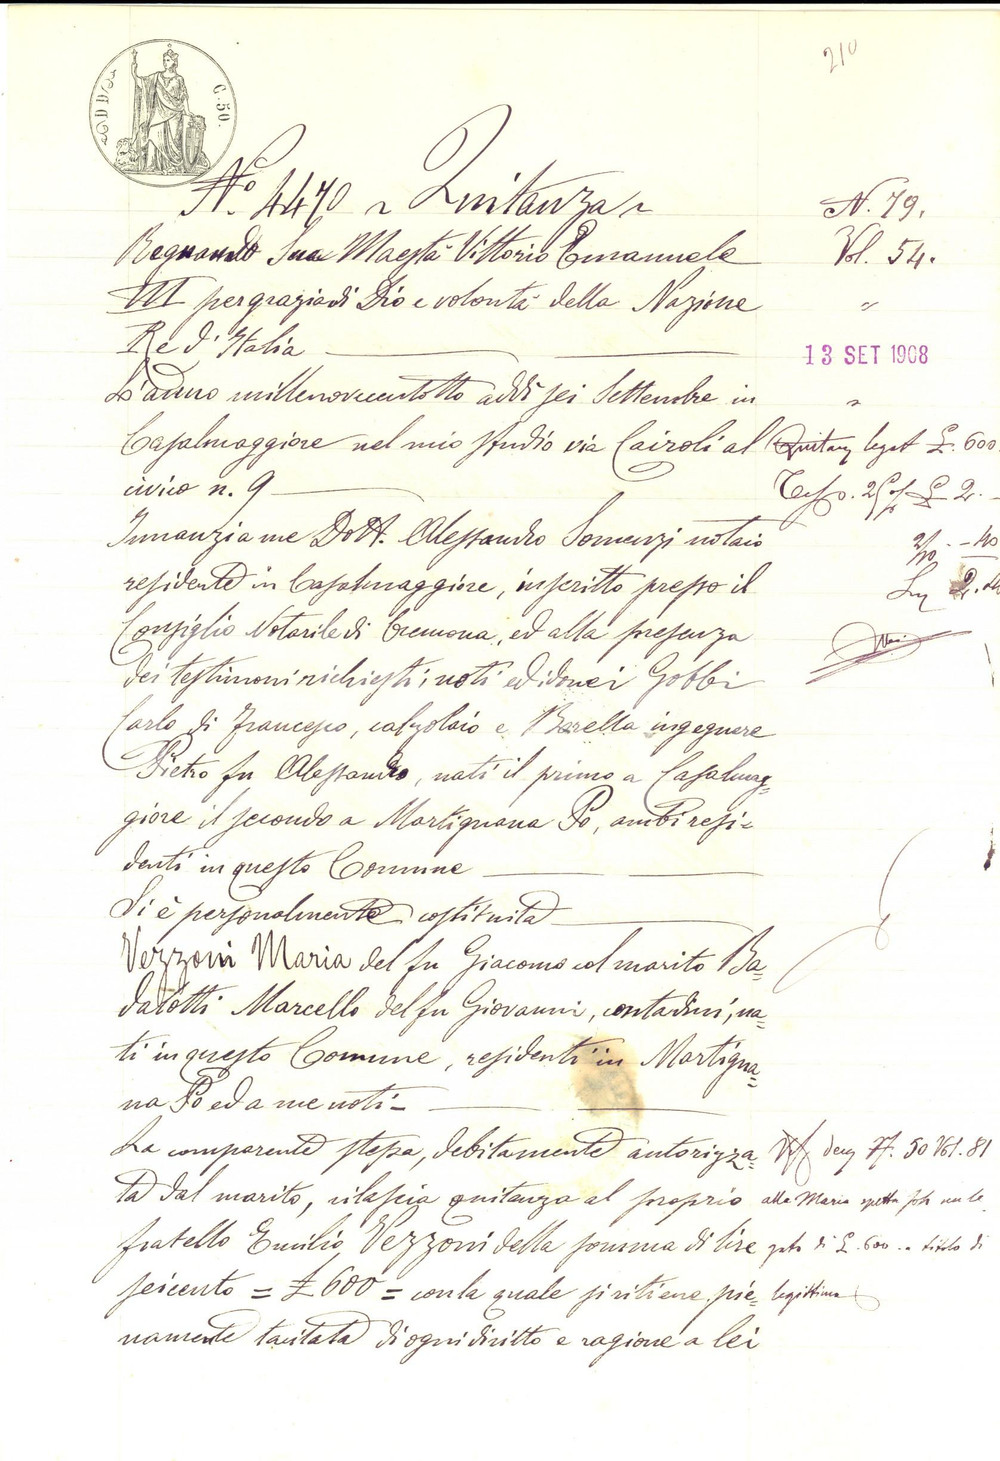 210
C. 50.
N.° 4470 ~ Quitanza ~
N. 79.
Regnando Sua Maestà Vittorio Emanuele
Vol. 54.
III per grazia di Dio e volontà della Nazione
"
Re d'Italia
13 SET 1908
L'anno millenovecentotto addì sei Settembre in
"
Casalmaggiore nel mio studio via Cairoli al
legat £. 600
civico n. 9
£ 2. -
Innanzi a me Dott. Alessandro Somenzi notaio
- 40
residente in Casalmaggiore, inscritto presso il
2.40
Consiglio Notarile di Cremona, ed alla presenza
dei testimoni richiesti, noti ed idonei Gobbi
Carlo di Francesco, calzolaio e Barella ingegnere
Pietro fu Alessandro, nati il primo a Casalmag=
giore il secondo a Martignana Po, ambi resi=
denti in questo Comune
Si è personalmente costituita
Vezzoni Maria del fu Giacomo col marito Ba=
dalotti Marcello del fu Giovanni, contadini, na=
ti in questo Comune, residenti in Martigna=
na Po ed a me noti -
La comparente stessa, debitamente autorizza=
den N. 50 Vol. 81
ta dal marito, rilascia quitanza al proprio
alla Maria spetta
fratello Emilio Vezzoni della somma di lire
di £. 600 .. titolo di
seicento = £ 600 = con la quale si ritiene pie=
legittima
namente tacitata di ogni diritto e ragione a lei